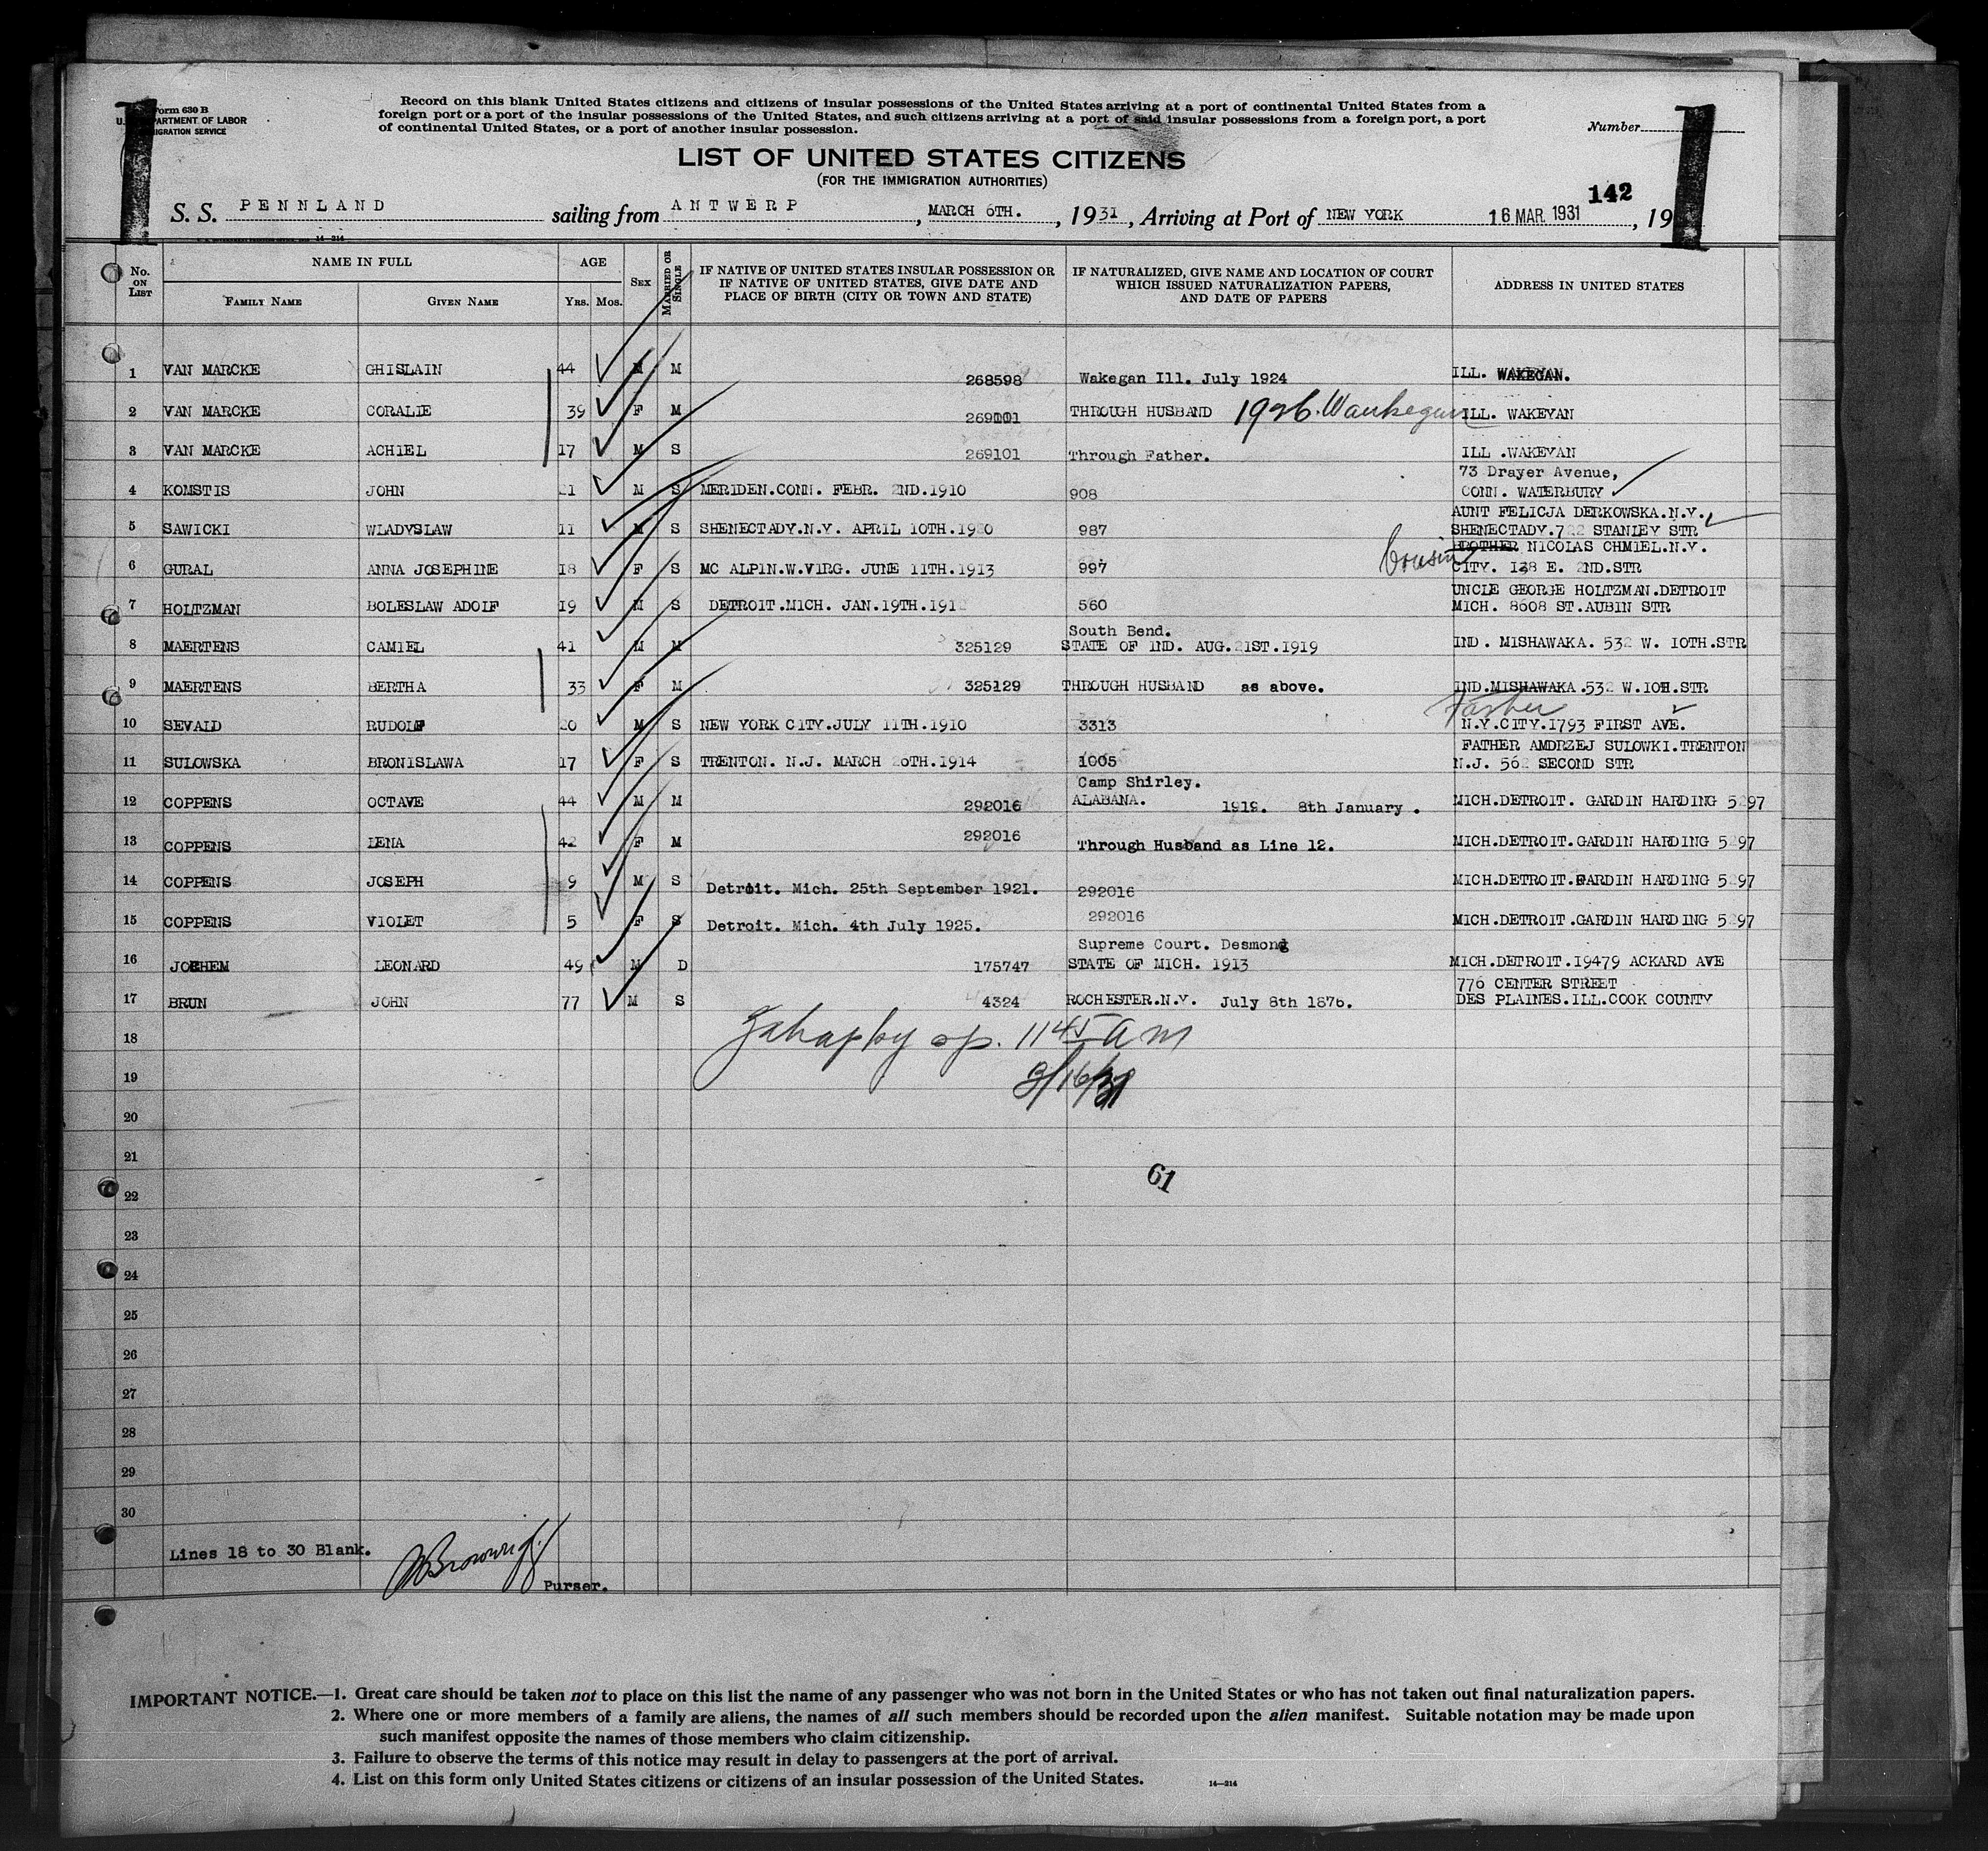 Form 630 B
U. S. DEPARTMENT OF LABOR
IMMIGRATION SERVICE
Record on this blank United States citizens and citizens of insular possessions of the United States arriving at a port of continental United States from a
foreign port or a port of the insular possessions of the United States, and such citizens arriving at a port of said insular possessions from a foreign port, a port
of continental United States, or a port of another insular possession.
Number
LIST OF UNITED STATES CITIZENS
(FOR THE IMMIGRATION AUTHORITIES)
142
S. S. PENNLAND sailing from ANTWERP, MARCH 6TH., 1931, Arriving at Port of NEW YORK 16 MAR. 1931, 19
14-214
No. ON LIST
NAME IN FULL
FAMILY NAME
GIVEN NAME
AGE
YRS. MOS.
SEX
MARRIED OR SINGLE
IF NATIVE OF UNITED STATES INSULAR POSSESSION OR
IF NATIVE OF UNITED STATES, GIVE DATE AND
PLACE OF BIRTH (CITY OR TOWN AND STATE)
IF NATURALIZED, GIVE NAME AND LOCATION OF COURT
WHICH ISSUED NATURALIZATION PAPERS,
AND DATE OF PAPERS
ADDRESS IN UNITED STATES
1 VAN MARCKE GHISLAIN 44 M M 268598 Wakegan Ill. July 1924 ILL. WAKEGAN.
2 VAN MARCKE CORALIE 39 F M 269101 THROUGH HUSBAND 1926. Waukegan ILL. WAKEYAN
3 VAN MARCKE ACHIEL 17 M S 269101 Through Father. ILL .WAKEYAN
73 Drayer Avenue,
4 KOMSTIS JOHN 21 M S MERIDEN.CONN. FEBR. 2ND.1910 908 CONN. WATERBURY
AUNT FELICJA DERKOWSKA.N.Y.
5 SAWICKI WLADYSLAW 11 M S SHENECTADY.N.Y. APRIL 10TH.1920 987 SHENECTADY.722 STANLEY STR
Cousin BROTHER NICOLAS CHMIEL.N.Y.
6 GURAL ANNA JOSEPHINE 18 F S MC ALPIN.W.VIRG. JUNE 11TH.1913 997 CITY. 138 E. 2ND.STR
UNCLE GEORGE HOLTZMAN.DETROIT
7 HOLTZMAN BOLESLAW ADOLF 19 M S DETROIT.MICH. JAN.19TH.1912 560 MICH. 8608 ST.AUBIN STR
South Bend.
8 MAERTENS CAMIEL 41 M M 325129 STATE OF IND. AUG.21ST.1919 IND. MISHAWAKA. 532 W. 10TH.STR
9 MAERTENS BERTHA 33 F M 325129 THROUGH HUSBAND as above. IND.MISHAWAKA.532 W.10H.STR
Father
10 SEVALD RUDOLF 20 M S NEW YORK CITY.JULY 11TH.1910 3313 N.Y.CITY.1793 FIRST AVE.
FATHER AMDRZEJ SULOWKI.TRENTON
11 SULOWSKA BRONISLAWA 17 F S TRENTON. N.J. MARCH 20TH.1914 1005 N.J. 562 SECOND STR
Camp Shirley.
12 COPPENS OCTAVE 44 M M 292016 ALABANA. 1919. 8th January. MICH.DETROIT. GARDIN HARDING 5297
13 COPPENS LENA 42 F M 292016 Through Husband as Line 12. MICH.DETROIT.GARDIN HARDING 5297
14 COPPENS JOSEPH 9 M S Detroit. Mich. 25th September 1921. 292016 MICH.DETROIT.GARDIN HARDING 5297
15 COPPENS VIOLET 5 F S Detroit. Mich. 4th July 1925. 292016 MICH.DETROIT.GARDIN HARDING 5297
Supreme Court. Desmond
16 JOCHEM LEONARD 49 M D 175747 STATE OF MICH. 1913 MICH.DETROIT.19479 ACKARD AVE
776 CENTER STREET
17 BRUN JOHN 77 M S 4324 ROCHESTER.N.Y. July 8th 1876. DES PLAINES.ILL.COOK COUNTY
18 1145 am
19 3/16/31
20
21
22 61
23
24
25
26
27
28
29
30
Lines 18 to 30 Blank.
Purser.
IMPORTANT NOTICE.—1. Great care should be taken not to place on this list the name of any passenger who was not born in the United States or who has not taken out final naturalization papers.
2. Where one or more members of a family are aliens, the names of all such members should be recorded upon the alien manifest. Suitable notation may be made upon
such manifest opposite the names of those members who claim citizenship.
3. Failure to observe the terms of this notice may result in delay to passengers at the port of arrival.
4. List on this form only United States citizens or citizens of an insular possession of the United States.
14—214